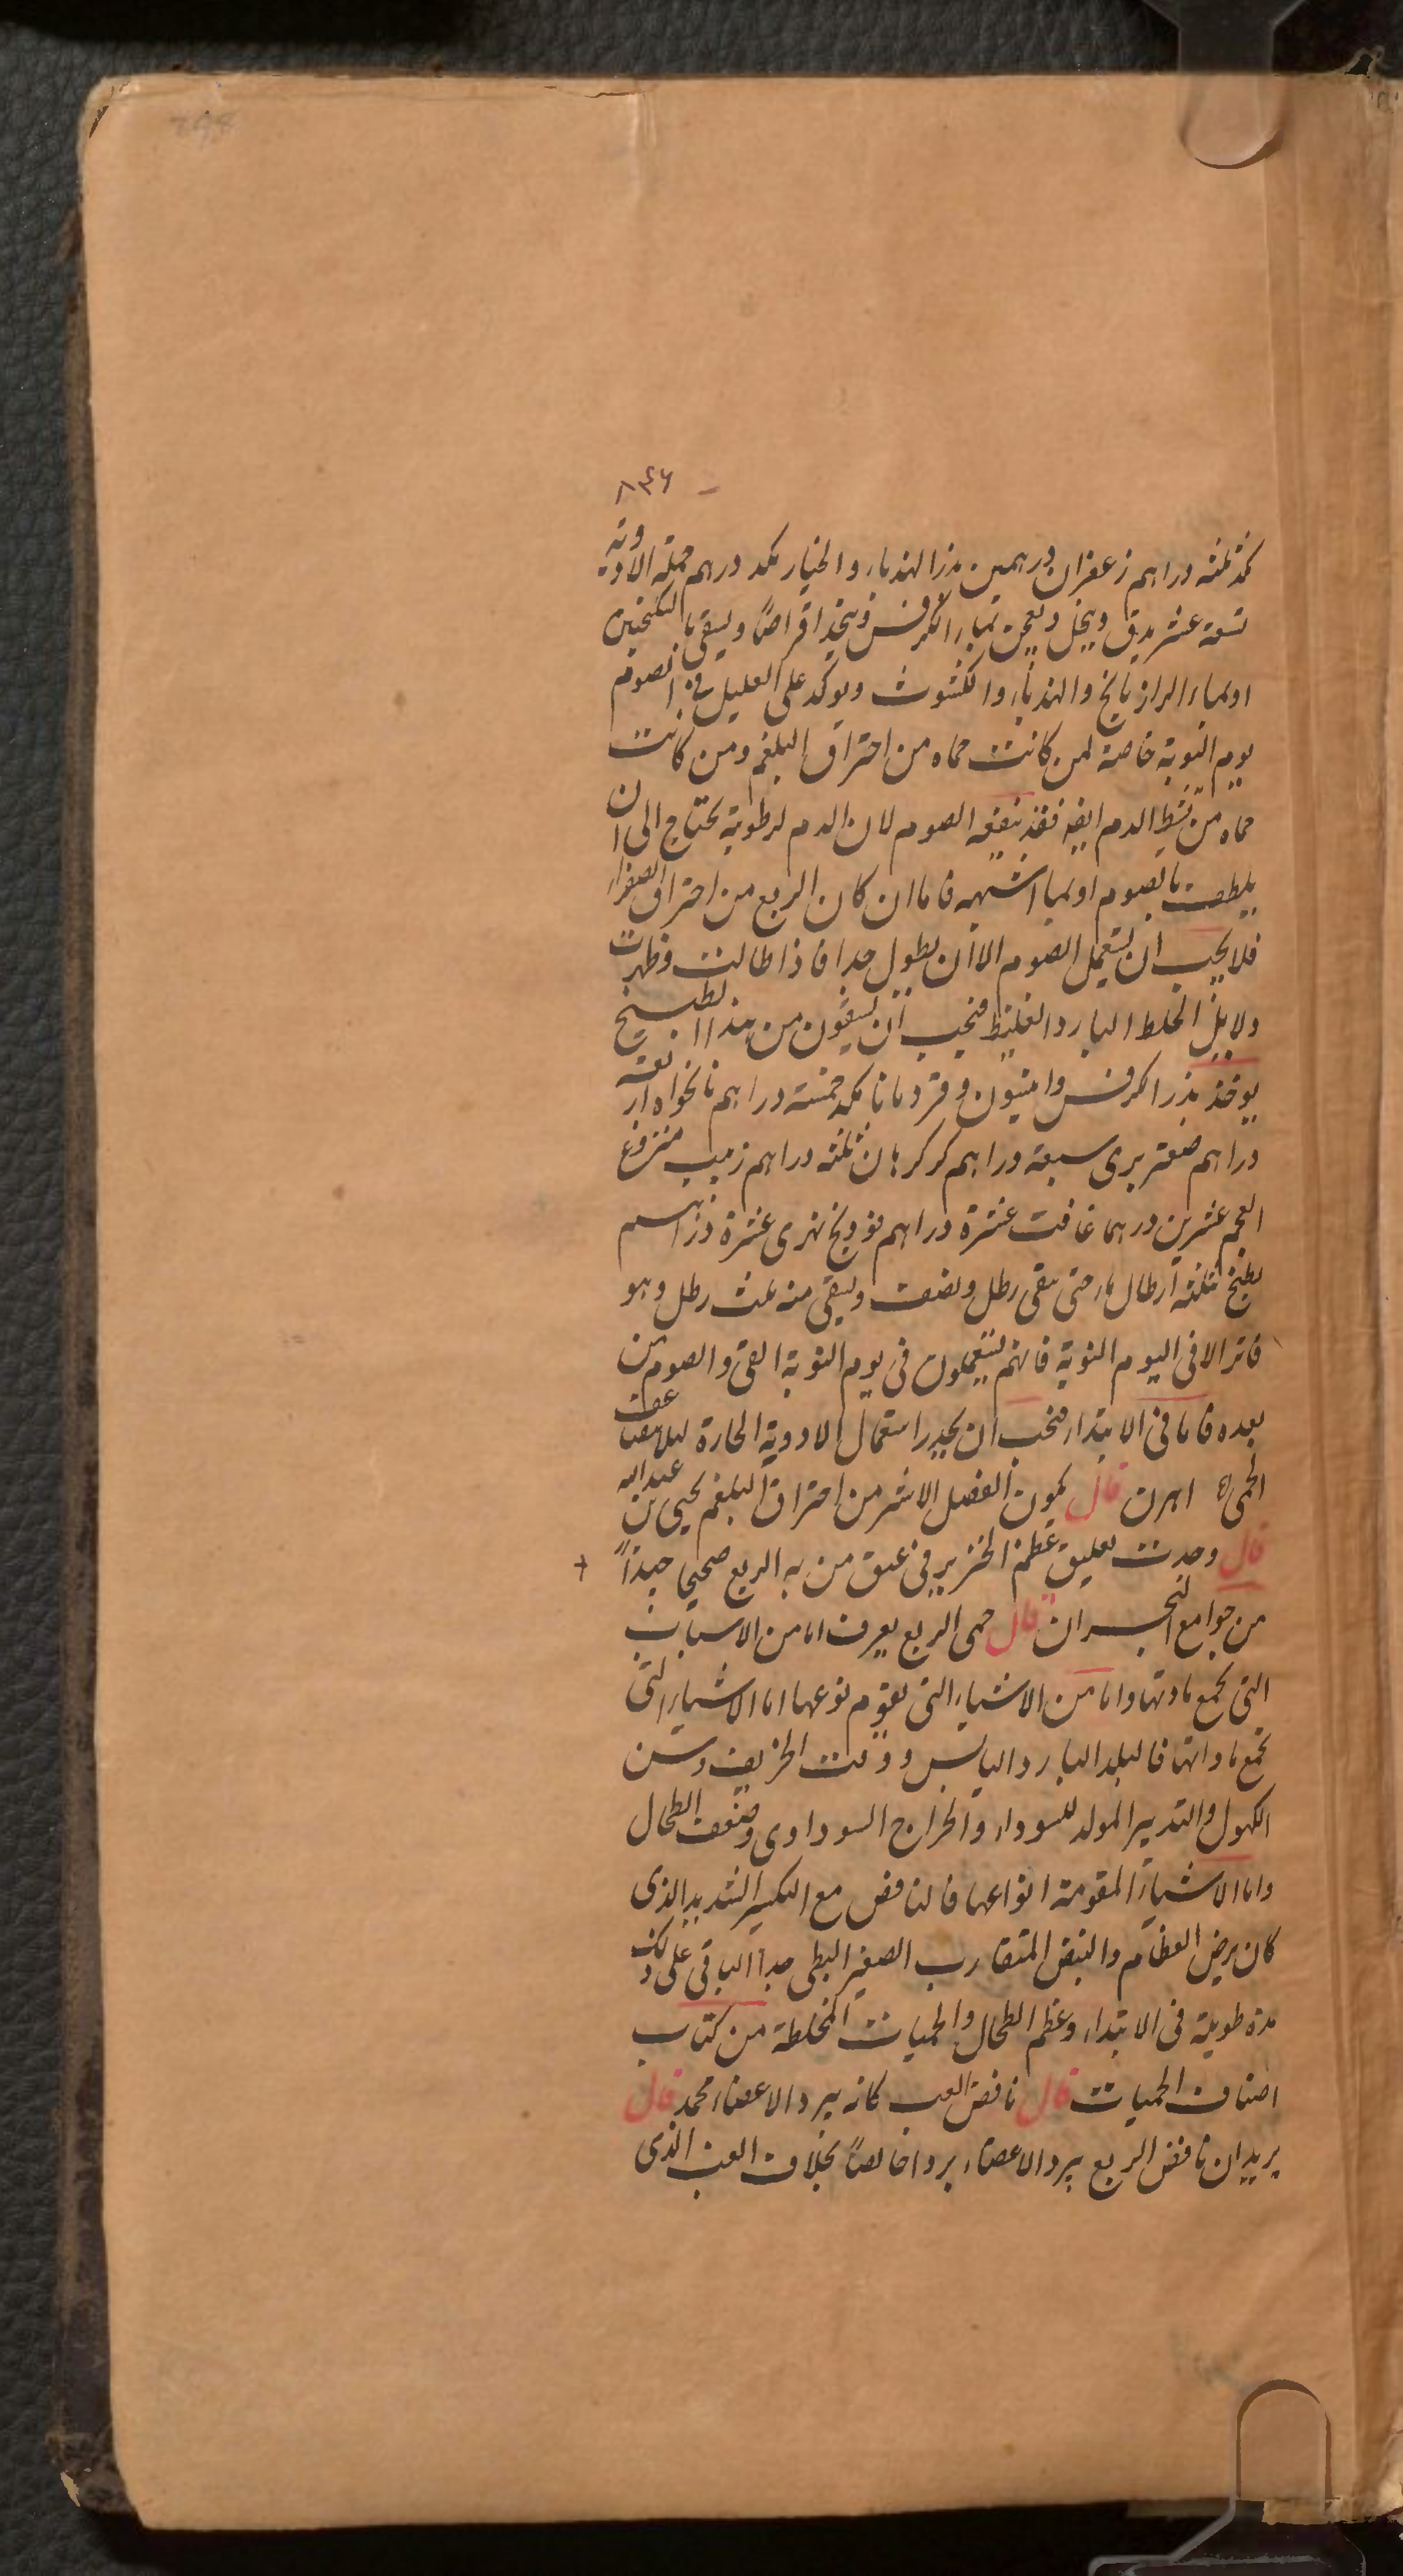 ٨٤٦
كمد ثلثه دراهم زعفران درهمين بذر الهندباء والخيار مكد درهم جملة الادوية
تسعة عشر يدق وينخل ويعجن بماء الكرفس ويتخذ اقراصاً ويسقى بالسكنجبين
او بماء الرازيانج والهندباء والكشوث ويوكد على العليل في الصوم
يوم النوبة خاصة لمن كانت حماه من احتراق البلغم ومن كانت
حماه من الدم ايضا فقد ينفعه الصوم لان الدم لرطوبته يحتاج الى ان
يلطف بالصوم او بما اشبهه فاما ان كان الربع من احتراق الصفراء
فلا يجب ان يستعمل الصوم الا ان يطول جدا فاذا طالت وظهرت
دلايل الخلط البارد الغليظ فيجب ان يسقون من هذا الطبيخ
يوخذ بذر الكرفس وانيسون وقردمانا مكد خمسة دراهم نانخواه اربعة
دراهم صعتر برى سبعة دراهم كركرهان ثلثه دراهم زبيب منزوع
العجم عشرين درهما غافت عشرة دراهم فودنج نهرى عشرة دراهم
يطبخ بثلثه ارطال ماء حتى يبقى رطل ونصف ويسقى منه ثلث رطل وهو
فاتر الا فى اليوم النوبة فانهم يستعملون فى يوم النوبة القى والصوم من
بعده فاما فى الابتداء فيجب ان يحذر استعمال الادوية الحارة ليلا يضاعف
الحمى اهرن قال يكون الفضل الاشر من احتراق البلغم يحيى بن عبد الله
قال وجدت تعليق عظم الخنزير فى عنق من به الربع صحيحا جيداً
من جوامع البحران قال حمى الربع يعرف اما من الاسباب
التى تجمع مادتها واما من الاشياء التى تقوم نوعها اما الاشياء التى
تجمع مادتها فالبلد البارد اليابس ووقت الخريف وسن
الكهول والتدبير المولد للسوداء والخراج السوداوى وضعف الطحال
واما الاشياء المقومة انواعها فالنافض مع التكسير الشديد الذى
كان يرض العظام والنبض المتقارب الصغير البطى جدا الباقى على ذلك
مدة طويلة فى الابتداء وعظم الطحال والحميات المخلطة من كتاب
اصناف الحميات قال نافض الغب كانه يبرد الاعضاء محمد قال
يريد ان نافض الربع يبرد الاعضاء بردا خالصاً بخلاف الغب الذى